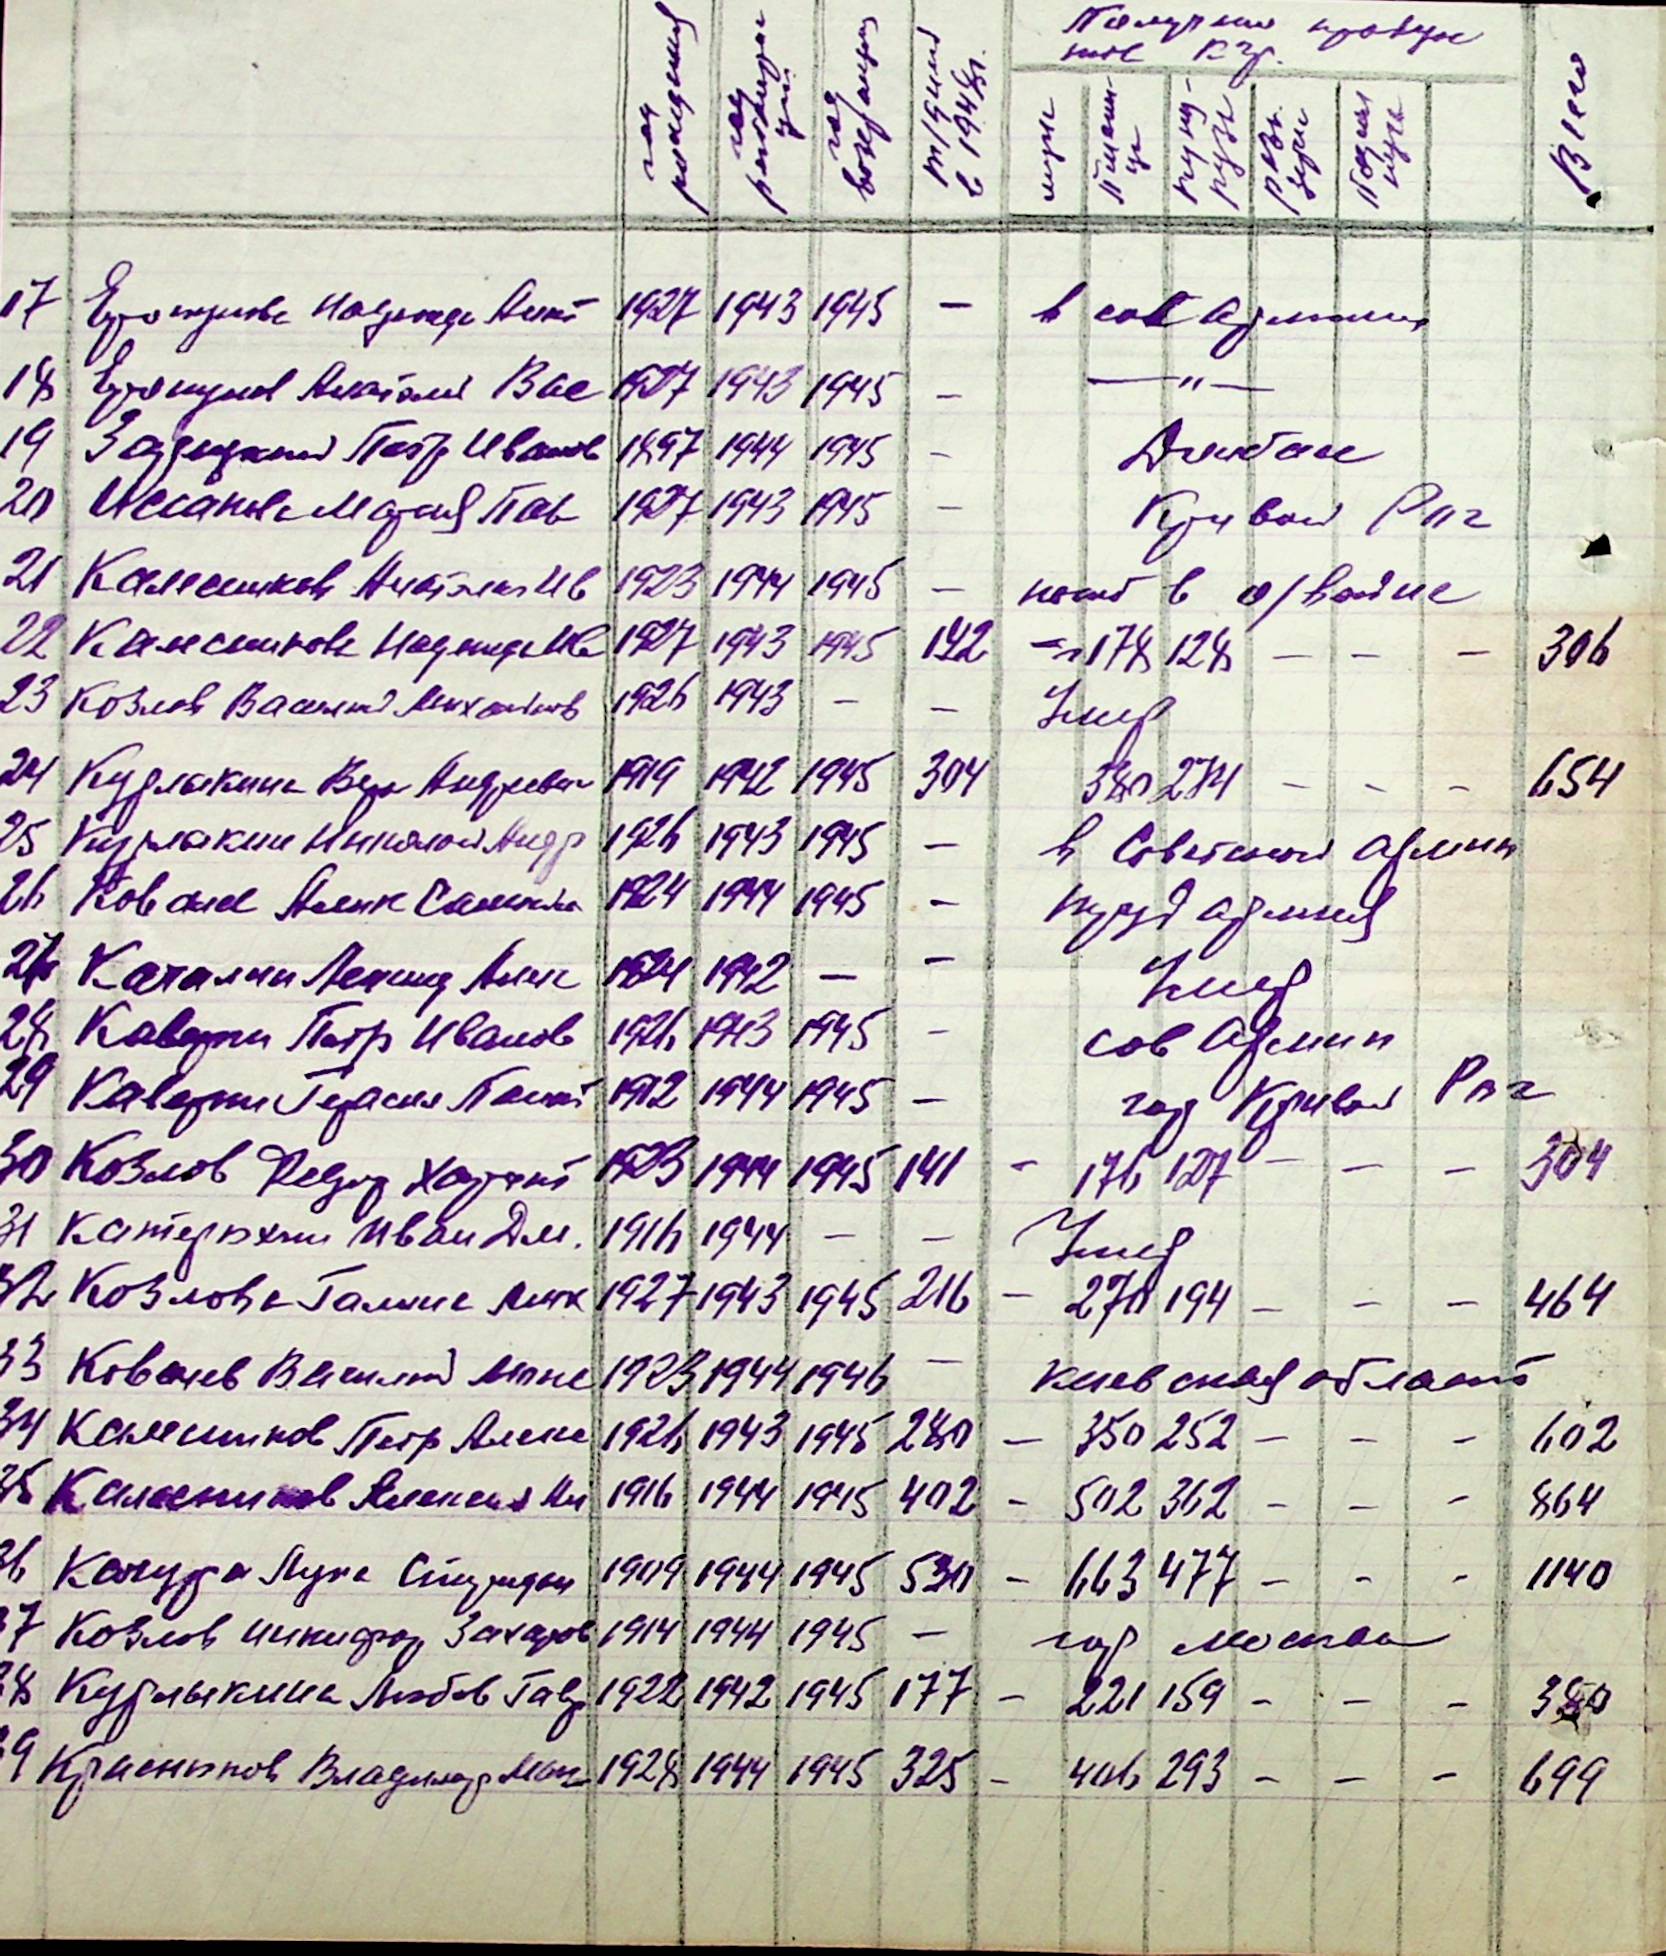 год рождения
год репатриации
год возвращения
тр/дней в 1948г.
Получено продук
тов кгр.
муки
пшени-
цы
куку-
рузы
Всего
17 Надежда 1927 1943 1945 — в сов армии
18 Анатолий Вас 1927 1943 1945 — —"—
19 Петр Иванов 1897 1944 1945 — Донбас
20 Мария Пав 1927 1943 1945 — Кривой Рог
21 Калесников Анатолий Ив 1923 1944 1945 — погиб в о/войне
22 Калесникова Надежда Ив 1927 1943 1945 142 — 178 128 — — — 306
23 Козлов Василий Михайлов 1926 1943 — — Умер
24 Курлыкина Вера Андреевн 1919 1942 1945 304 380 274 — — — 654
25 Курлыкин Николай Андр 1926 1943 1945 — в Советской армии
26 1924 1944 1945 — армия
27 Леонид Алек 1924 1942 — — Умер
28 Каверин Петр Иванов 1926 1943 1945 — сов Армии
29 Каверин 1912 1944 1945 — гор Кривой Рог
30 Козлов Федор 1923 1944 1945 141 — 176 127 — — — 304
31 Катерюхин Иван Дм. 1916 1944 — — Умер
32 Козлова Галина Мих 1927 1943 1945 216 — 270 194 — — — 464
33 Ковалев Василий 1923 1944 1946 — Киевская область
34 Калесников Петр Алекс 1926 1943 1945 280 — 350 252 — — — 602
35 Калесников Алексей Ни 1916 1944 1945 402 — 502 362 — — — 864
36 Качура Лука Спиридон 1909 1944 1945 530 — 663 477 — — — 1140
37 Козлов Никифор Захаров 1914 1944 1945 — гор Москва
38 Курлыкина Любов Гавр 1922 1942 1945 177 — 221 159 — — — 380
39 Красников Владимир 1928 1944 1945 325 — 406 293 — — — 699